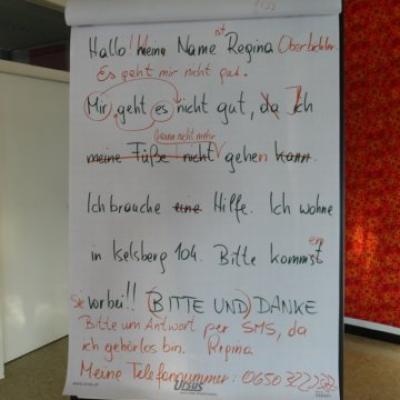 Hallo! Meine Name ist Regina
Es geht mir nicht gut.
Mir geht es nicht gut, da Ich
kann nicht mehr
meine Füße nicht gehen kann.
Ich brauche eine Hilfe. Ich wohne
in Kelsberg 104. Bitte kommst en
Sie vorbei!! (BITTE UND) DANKE
Bitte um Antwort per SMS, da
ich gehörlos bin. Regina
Meine Telefonnummer: 0650
URSUS